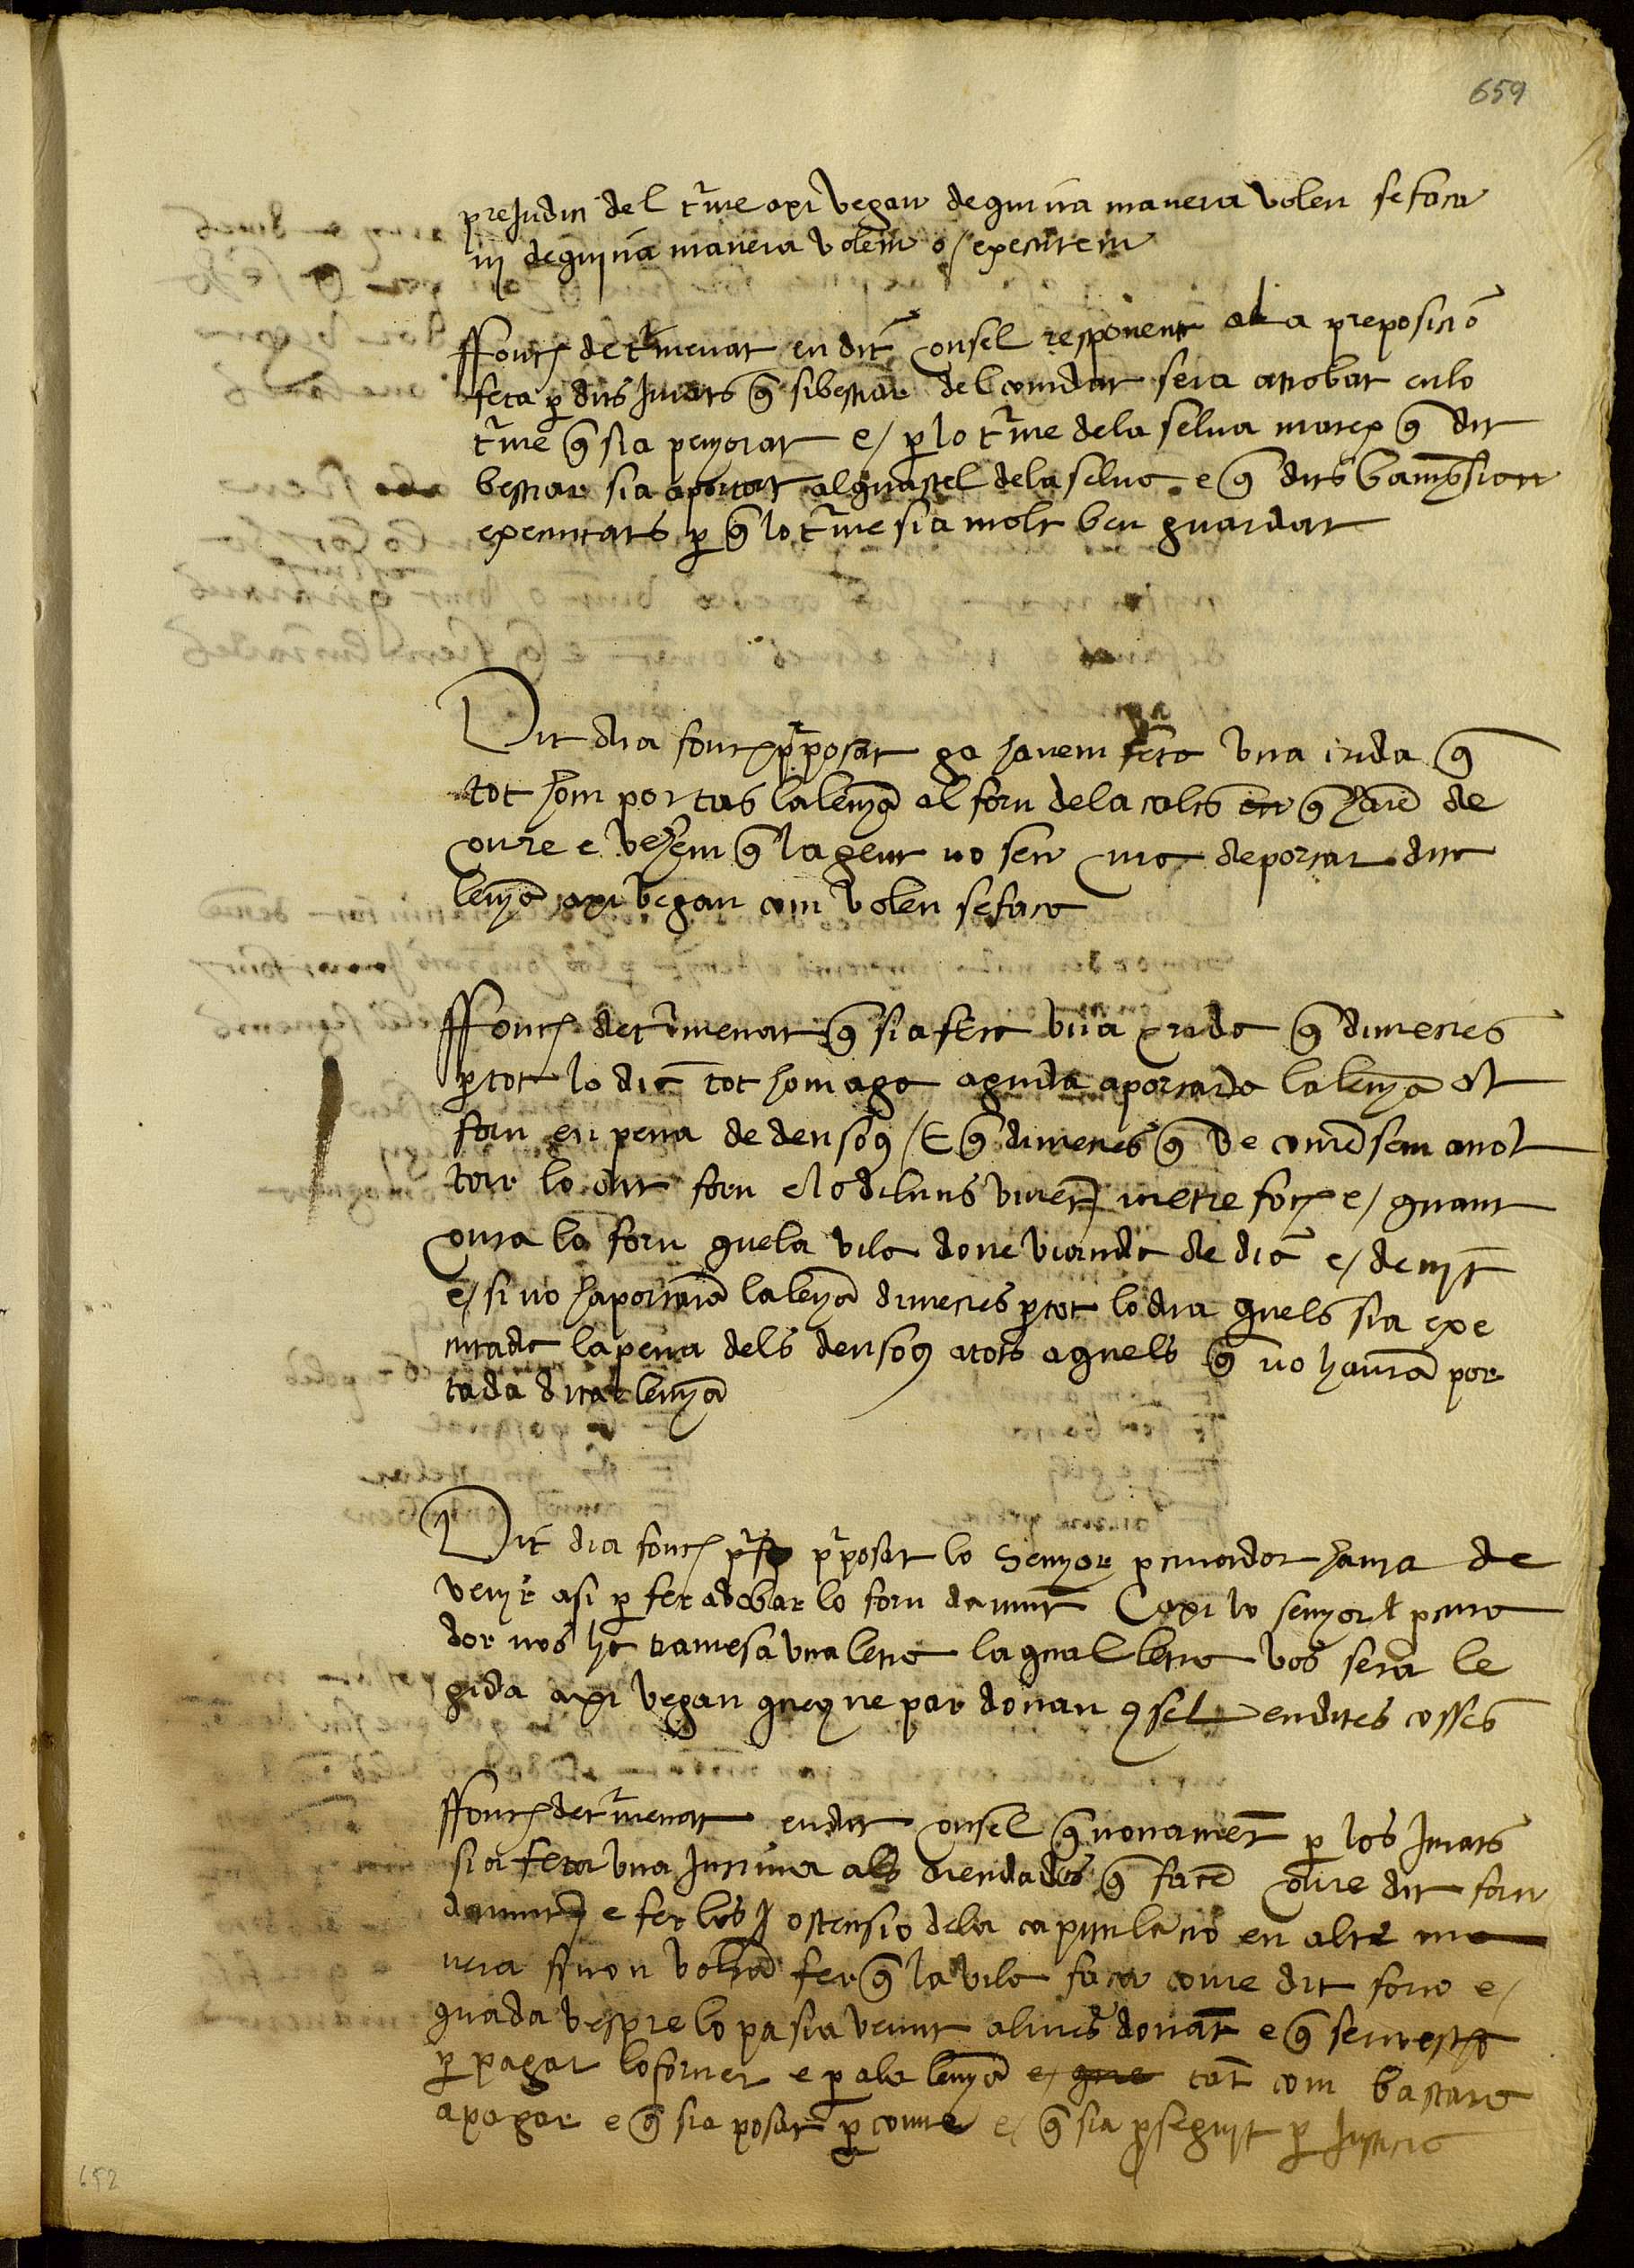 659
preJudici del tme axi vegan de quina manera volen se faca
ni de quina manera volem o/ executem
ffonch determenat en dit Consel responent a la preposicio
feta per dits Jurats que si bestiar del comdat sera atrobat en lo
tme que sia penyorat e/ per lo tme de la selva matex que dit
bestiar sia aportat al guastel de la selva e que dits bams sien
executats per que lo tme sia molt ben guardat
Dit dia fonch proposat ga havem feta una crida que
tot hom portas la lenya al forn de la cals que havem de
coure e vehem que la gent no sen cura de portar dita
lenya axi vegan com volen se faca
ffonch determenat que sia feta una crida que dimecres
per tot lo dia tot hom aga aguda aportada la lenya al
forn en pena de den sous / E que dimecres que ve comensem a mol
tar lo dit forn e lo diluns vinent metre foch e/ quant
coura lo forn que la vila done vianda de dia e/ de nyt
e/ si no haportaran la lenya dimecres per tot lo dia quels sia exe
cutada la pena dels den sous a tots aquels que no hauran por
tada dita lenya
Dit dia fonch proposat lo Senyor procurador havia de
venyr asi per fer adobar lo forn damunt E axi lo senyor procura
dor nos ha tramesa una letra la qual letra vos sera le
gida axi vegan que que ne par donan consel en dites cosses
ffonch determenat en dit Consel que novament per los Jurats
sia feta una Intima als arendados que facen coure dit forn
damunt e fer los ostensio de la capitulacio en altra ma
nera si no u volran fer que la vila faca coure dit forn e/
quada vespre lo pa sia venut al mes donant e que sen rest
per pagar lo forner e per a la lenya e/ tant com bastara
a pagar e que sia posat per coure e/ que sia proseguit per Justicia
652